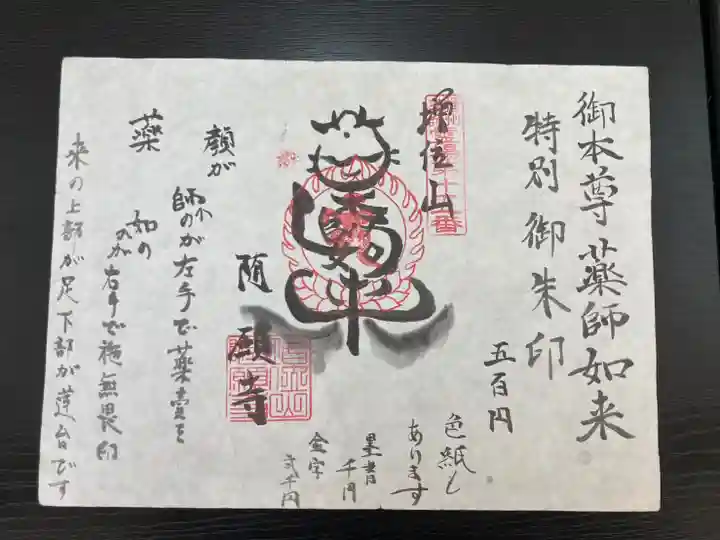 御本尊薬師如来
特別御朱印
五百円
色紙も
あります
墨書
千円
金字
弐千円
増位山
随願寺
薬師如来
顔が
薬
師のが左手で薬壷を
如の
口が右手で施無畏印
来の上部が足下部が蓮台です